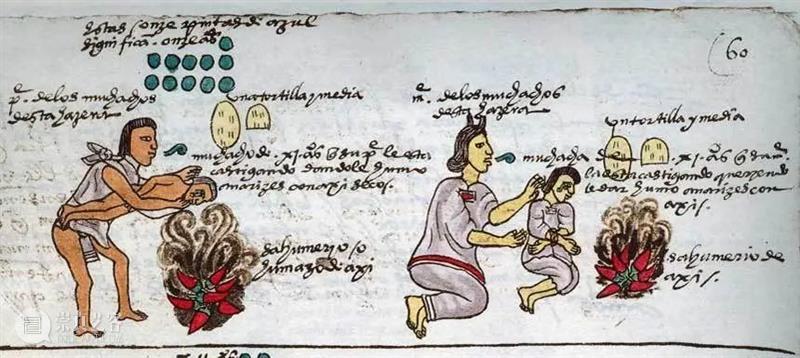 60
estas onze pintas de azul
significan onze aºs
pº. de los muchachos
desta hazera
una tortilla y media
muchacho de .xi. aºs q̃ su pº le esta
castigando dandole humo
a narizes con axi secos.
sahumerio o
humazo de axi
mº. de los muchachos
desta hazera
un tortilla y media
muchacha de .xi. aºs q̃ su mº.
la esta castigando queriendo
le dar humo a narizes con
axis.
sahumerio de
axis.